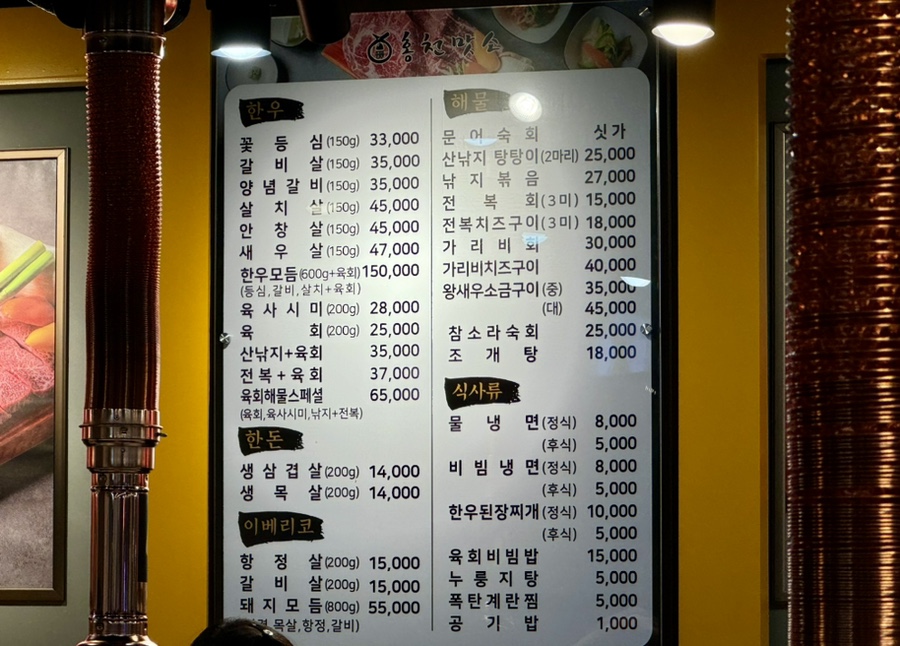 홍천맛소
한우
꽃등심(150g) 33,000
갈비살(150g) 35,000
양념갈비(150g) 35,000
살치살(150g) 45,000
안창살(150g) 45,000
새우살(150g) 47,000
한우모듬(600g+육회) 150,000
(등심,갈비,살치+육회)
육사시미(200g) 28,000
육회(200g) 25,000
산낚지+육회 35,000
전복+육회 37,000
육회해물스페셜 65,000
(육회,육사시미,낚지+전복)
한돈
생삼겹살(200g) 14,000
생목살(200g) 14,000
이베리코
항정살(200g) 15,000
갈비살(200g) 15,000
돼지모듬(800g) 55,000
목살,항정,갈비)
해물
문어숙회 싯가
산낚지 탕탕이(2마리) 25,000
낚지볶음 27,000
전복회(3미) 15,000
전복치즈구이(3미) 18,000
가리비회 30,000
가리비치즈구이 40,000
왕새우소금구이(중) 35,000
(대) 45,000
참소라숙회 25,000
조개탕 18,000
식사류
물냉면(정식) 8,000
(후식) 5,000
비빔냉면(정식) 8,000
(후식) 5,000
한우된장찌개(정식) 10,000
(후식) 5,000
육회비빔밥 15,000
누룽지탕 5,000
폭탄계란찜 5,000
공기밥 1,000